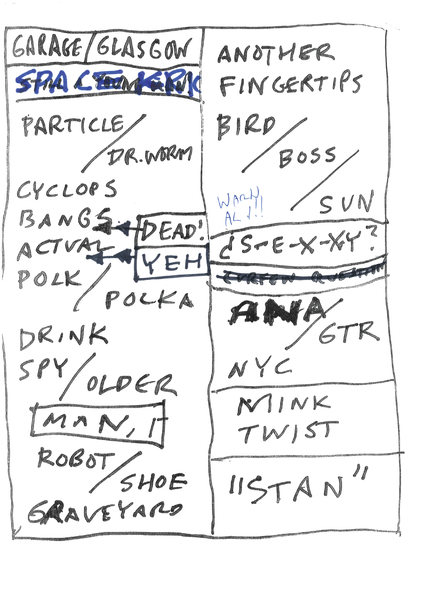 GARAGE/GLASGOW
SPACE KRK
PARTICLE/
DR.WORM
CYCLOPS
BANGS
DEAD!
ACTUAL
YEH
POLK/
POLKA
DRINK
SPY/OLDER
MAN, I
ROBOT/
SHOE
GRAVEYARD
ANOTHER
FINGERTIPS
BIRD/
BOSS/
SUN
WARN
AL!!!
¿S-E-X-X-Y?
ANA/
GTR
NYC
MINK
TWIST
"STAN"